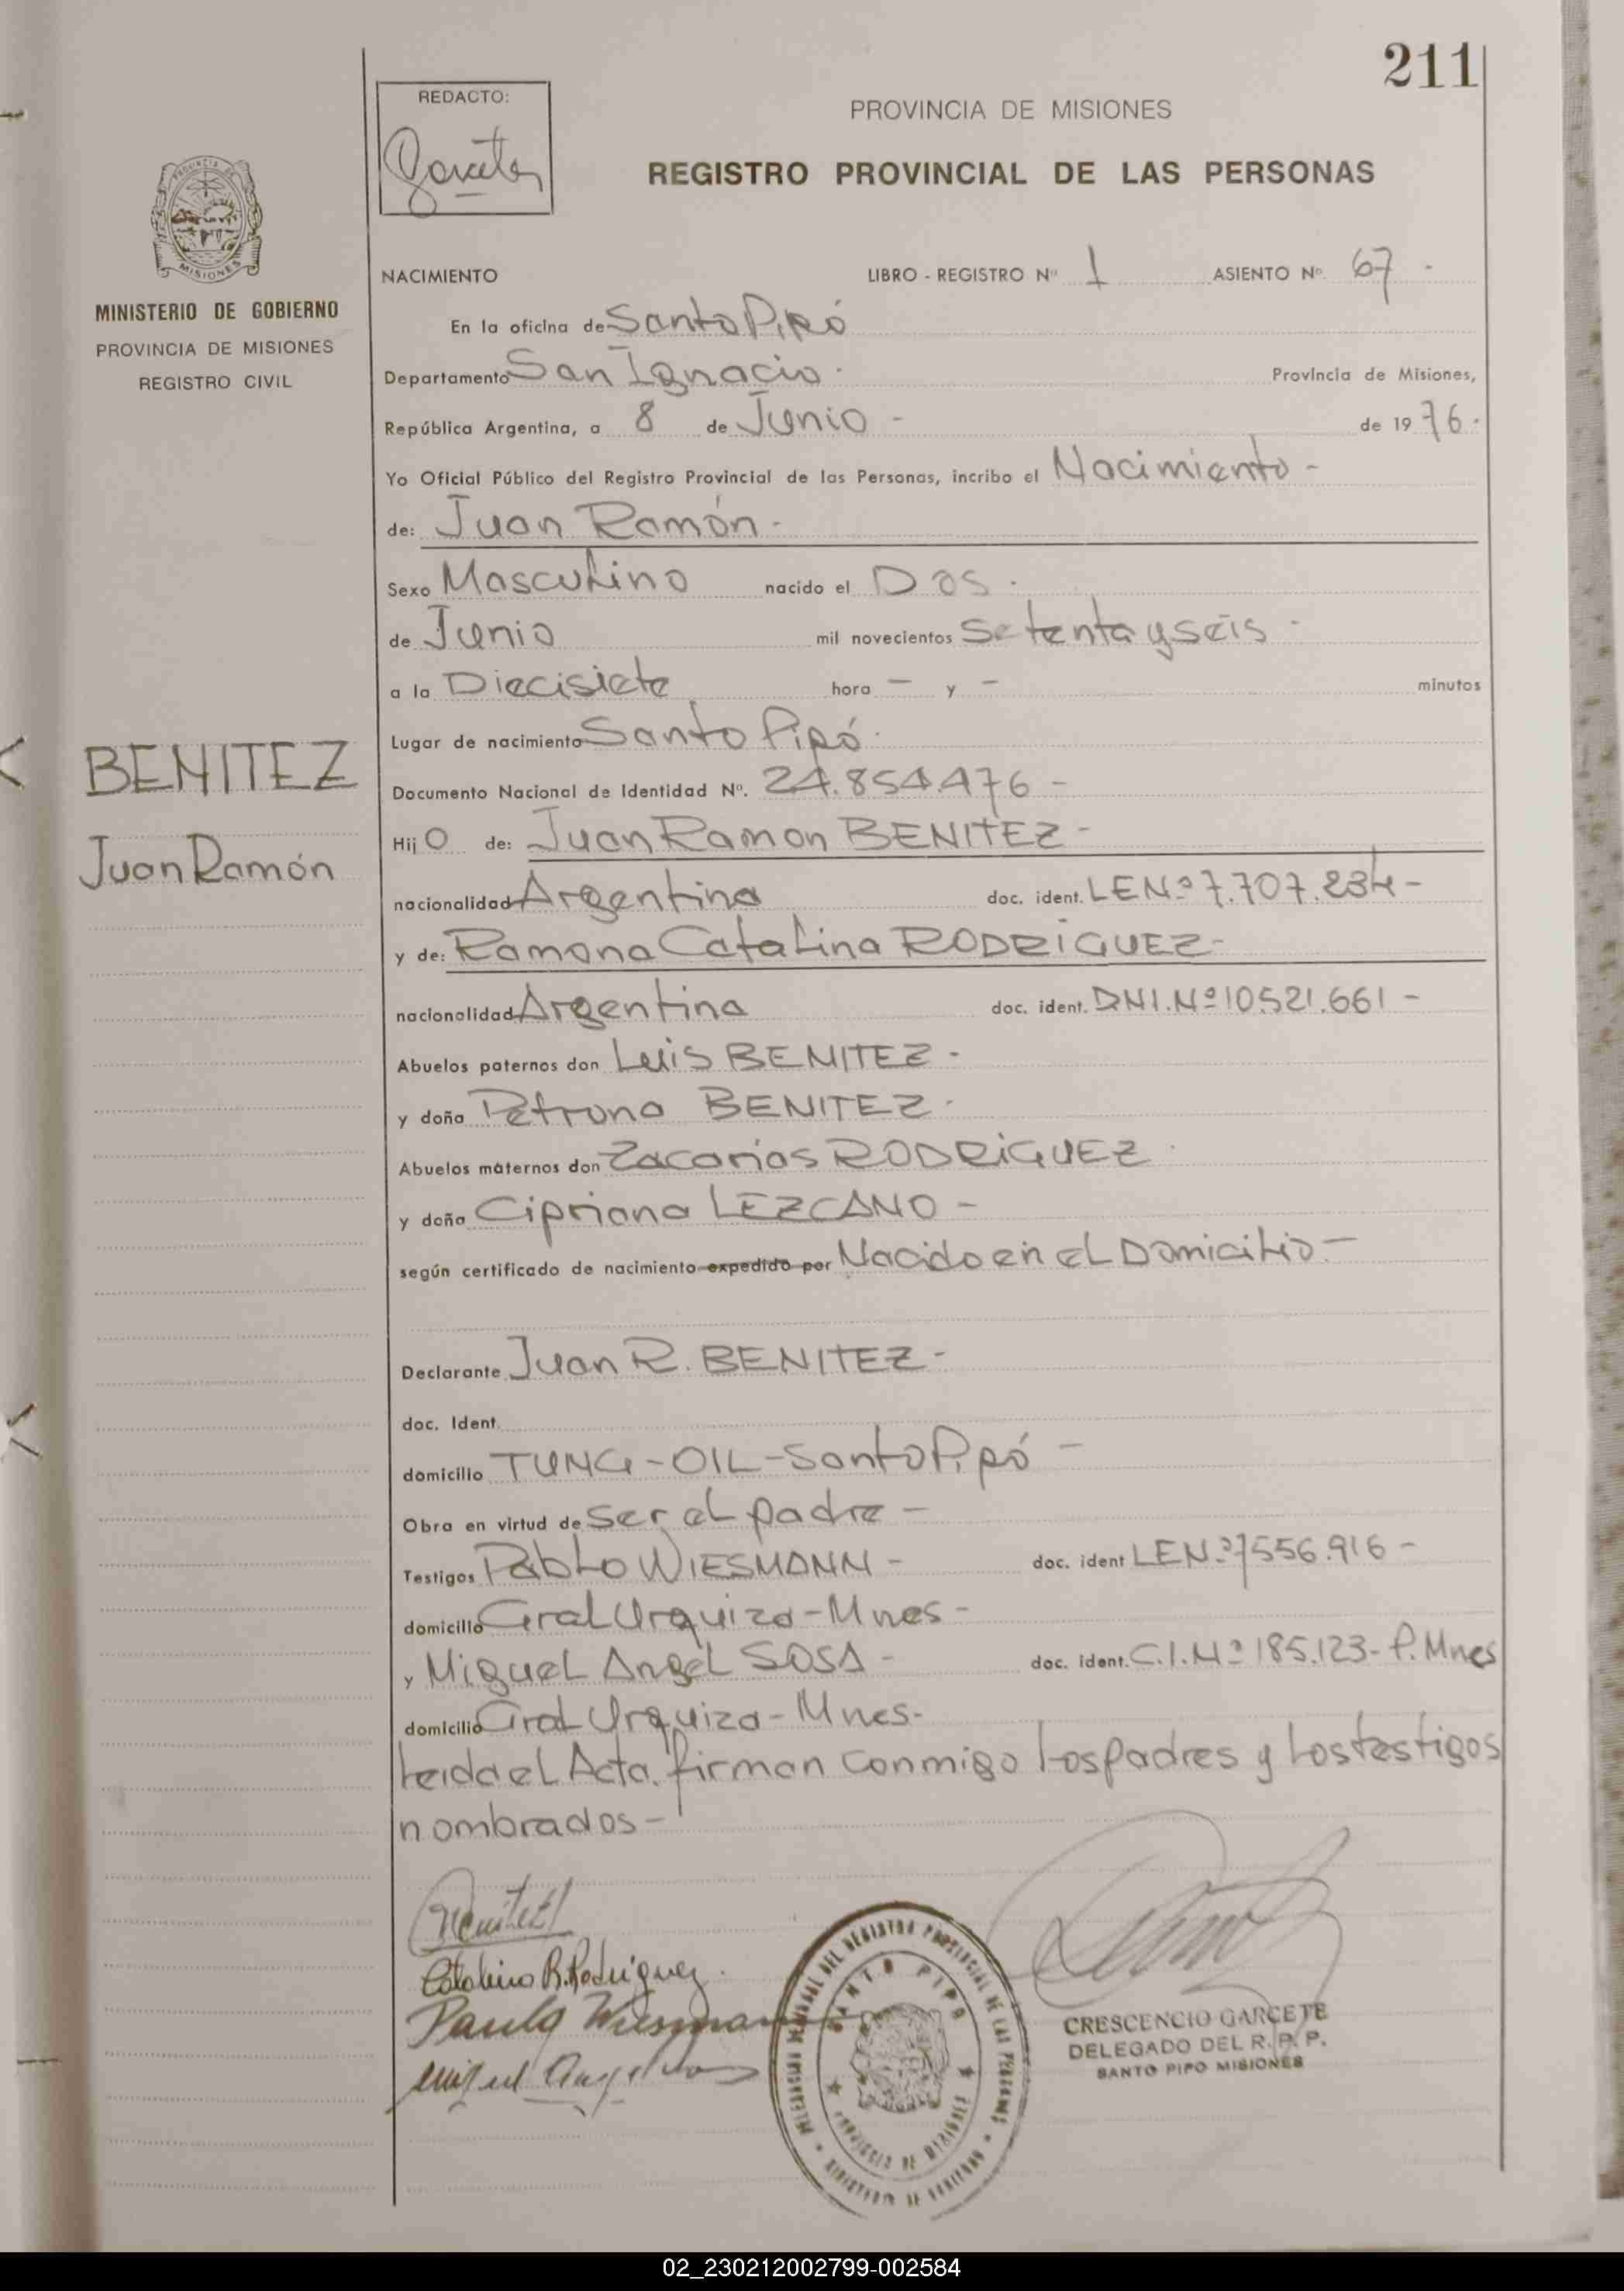 211
REDACTO:
PROVINCIA DE MISIONES
REGISTRO PROVINCIAL DE LAS PERSONAS
MISIONES
MINISTERIO DE GOBIERNO
PROVINCIA DE MISIONES
REGISTRO CIVIL
NACIMIENTO LIBRO - REGISTRO Nº 1 ASIENTO Nº 67 -
En la oficina de Santo Pipó
Departamento San Ignacio. Provincia de Misiones,
República Argentina, a 8 de Junio - de 1976.
Yo Oficial Público del Registro Provincial de las Personas, incribo el Nacimiento -
de: Juan Ramón.-
Sexo Masculino nacido el Dos.
de Junio mil novecientos Setenta y seis -
a la Diecisiete hora - y - minutos
Lugar de nacimiento Santo Pipó.
BENITEZ
Documento Nacional de Identidad Nº. 24.854.476 -
Juan Ramón
Hijo de: Juan Ramon BENITEZ -
nacionalidad Argentina doc. ident. LENº 7.707.234 -
y de: Ramona Catalina RODRIGUEZ-
nacionalidad Argentina doc. ident. DNI.Nº 10.521.661 -
Abuelos paternos don Luis BENITEZ -
y doña Petrona BENITEZ -
Abuelos maternos don Zacarias RODRIGUEZ
y doña Cipriana LEZCANO -
según certificado de nacimiento expedido por Nacido en el Domicilio -
Declarante Juan R. BENITEZ -
doc. Ident.
domicilio TUNG-OIL-Santo Pipó -
Obra en virtud de ser el padre -
Testigos Pablo WIESMANN - doc. ident LENº 7556.916 -
domicilio Gral Urquiza - Mnes -
y Miguel Angel SOSA - doc. ident. C.I.Nº 185.123- P. Mnes
domicilio Gral Urquiza - Mnes-
Leida el Acta, firman conmigo los padres y los testigos
nombrados-
Benitez
Catalina R. Rodriguez.
SANTO PIPO
PROVINCIA DE MISIONES
CRESCENCIO GARCETE
DELEGADO DEL R. P. P.
SANTO PIPO MISIONES
02_230212002799-002584